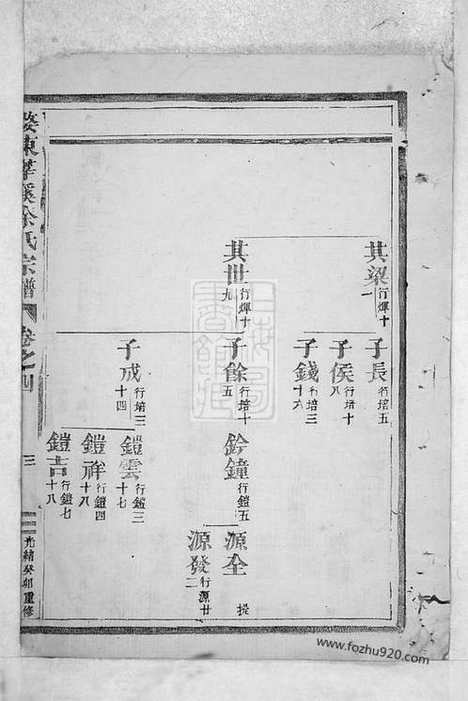 其梁 行煇十一
子長 行培五
子侯 行培十八
子錢 行培三十六
其世 行煇十九
子餘 行培十五
鈐鐘 行鎧五
源全 提
源發 行源廿二
子成 行培三十四
鎧雲 行鎧三十七
鎧祥 行鎧四十八
鎧吉 行鎧七十八
婺東華溪余氏宗譜
卷之四
三
光緒癸卯重修
www.fozhu920.com